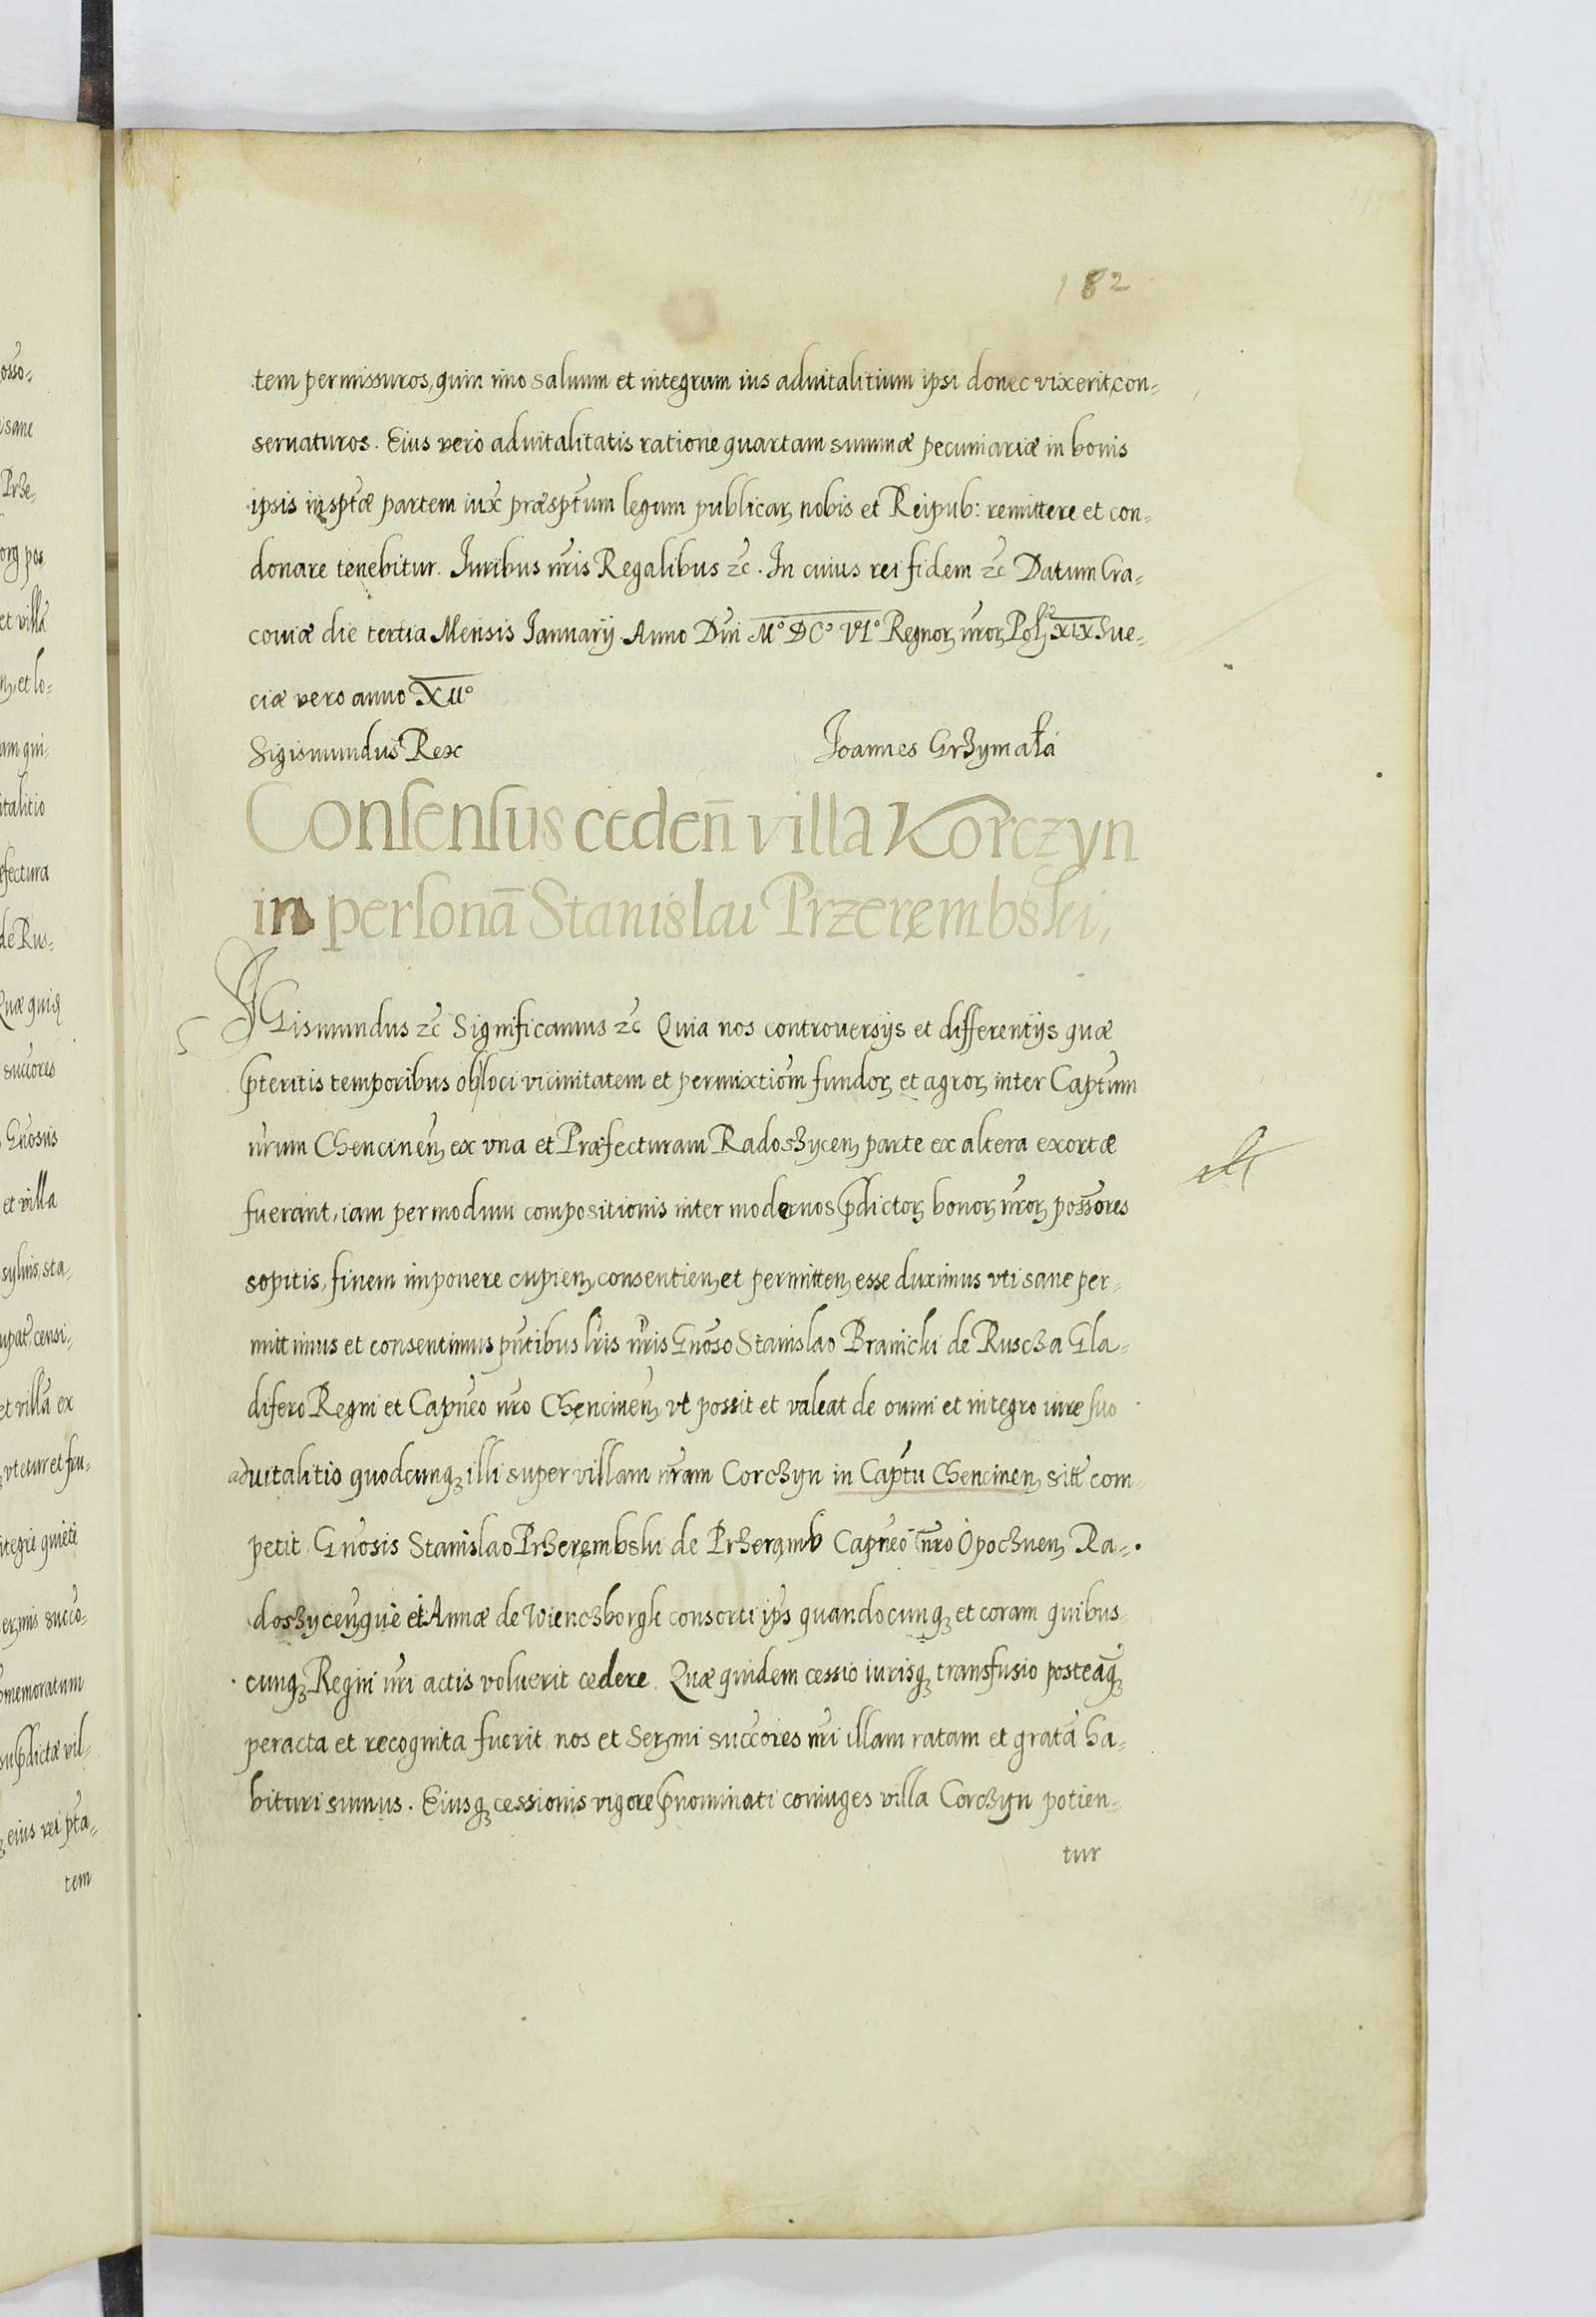 182
tem permissuros, quin imo saluum et integrum ius aduitalitium ipsi donec vixerit, con-
seruaturos. Eius vero aduitalitatis ratione quartam summæ pecuniariæ in bonis
ipsis insp̃tæ partem iux̃ præsp̃tum legum publicarꝫ nobis et Reipub: remittere et con-
donare tenebitur. Iuribus nr̃is Regalibus zc̃. In cuius rei fidem zc̃ Datum Cra-
couiæ die tertia Mensis Ianuarij Anno Dn̄i M° DC° VI° Regnorꝫ nr̃orꝫ Polꝫ XIX Sue-
ciæ vero anno XII°
Sigismundus Rex Ioannes Grzymała
Consensus ceden̄ villa Korczyn
in personā Stanislai Przerembski,
SIGismundus zc̃ Significamus zc̃ Quia nos controuersijs et differentijs quæ
p̄teritis temporibus ob loci vicinitatem et permixtiōm fundorꝫ et agrorꝫ inter Capt̃um
nr̃um Chencinen̄ꝫ ex vna et Præfecturam Radoszycenꝫ parte ex altera exortæ
fuerant, iam per modum compositionis inter modernos p̄dictorꝫ bonorꝫ nr̃orꝫ posso͠res
sopitis, finem imponere cupienꝫ, consentienꝫ et permittenꝫ esse duximus vti sane per-
mittimus et consentimus pn̄tibus lr̃is nr̃is Gnōso Stanislao Branicki de Ruscza Gla-
difero Regni et Capn̄eo nr̃o Chęncinen̄ꝫ vt possit et valeat de omni et integro iure suo
aduitalitio quodcunqꝫ illi super villam nr̃am Corczyn in Capt̃u Chencinenꝫ sitt̃ com-
petit Gnōsis Stanislao Przerembski de Przerąmb Capn̄eo nr̃o Opocznenꝫ Ra-
doszycenꝫque et Annæ de Wienczborgk consorti ip̃s quandocunqꝫ et coram quibus-
cunqꝫ Regni nr̃i actis voluerit cedere. Quæ quidem cessio iurisqꝫ transfusio posteaqꝫ̃
peracta et recognita fuerit, nos et Serꝫmi succo͠res nr̃i illam ratam et gratā ha-
bituri sumus. Eiusqꝫ cessionis vigore p̄nominati coniuges villa Corczyn potien-
tur